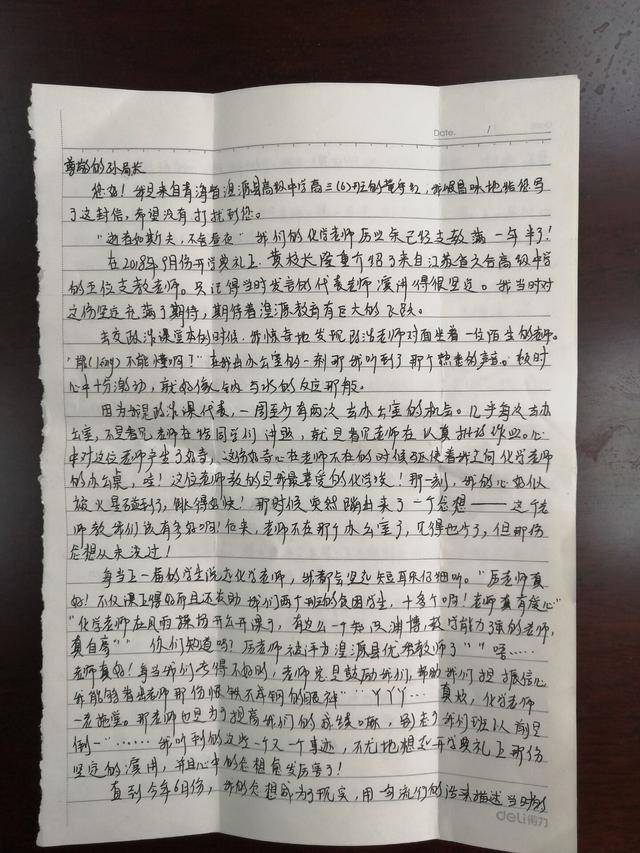 Date. /
尊敬的孙局长
您好！我是来自青海省湟源县高级中学高三(6)班的董我冒昧地给您写
了这封信，希望没有打扰到您。
"逝者如斯夫，不舍昼夜"我们的化学老师厉老师已经支教满一年半了！
在2018年9月份开学典礼上，黄校长隆重介绍了来自江苏省六合高级中学
的五位支教老师。只记得当时发言的代表老师演用得很坚定。我当时对
这份坚定充满了期待，期待着湟源教育有巨大的飞跃。
去交政治课堂本的时候，我惊奇地发现政治老师对面坐着一位陌生的老师。
不能懂啊？"在我出办公室的一刹那我听到了那个熟悉的声音。顿时
心中十分激动，就好像钠与水的反应那般。
因为我是政治课代表，一周至少有两次去办公室的机会。几乎每次去办
公室，不是看见老师在给同学们讲题，就是看见老师在认真批改作业。心
中对这位老师产生了好奇，这份好奇心在老师不在的时候驱使着我走向化学老师
的办公桌，哇！这位老师教的是我最喜爱的化学哎！那一刻，我的心好似
被火星碰到了，跳得好快！那时候突然蹦出来了一个念想——这个老
师教我们该有多好啊！后来，老师不在那个办公室了，见得也少了，但那份
念想从来没过！
每当上一届的学生说起化学老师，我都会竖起短耳朵仔细听。"厉老师真
好！不仅课上得好而且还去助我们两个班的贫困学生，十多个呀！老师真有爱心"
"化学老师在风雨操场开公开课了，有这么一个知识渊博，教学能力强的老师，
真自豪""你们知道吗？厉老师被评为湟源县优秀教师了""嗯……
老师真好！每当我们考得不好时，老师总是鼓励我们，帮助我们提振信心
我能够看出老师那份恨铁不成钢的眼神""丫丫丫…真敢，化学老师
一定施主。那老师也是为了提高我们的成绩嘛，别忘了我们班从前是
倒一"……我听到的这些一个又一个事迹，不尤地想起开学典礼上那份
坚定的演用，并且心中的念想愈发厉害了！
直到今年6月份，我的念想成为了现实，用句流行的话来描述当时的
deli得力